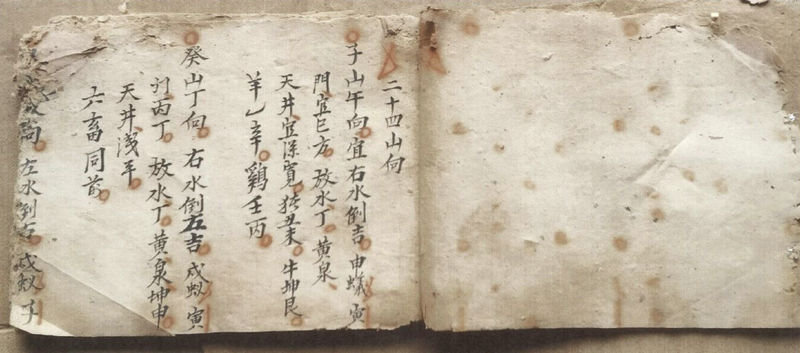 二十四山向
子山午向宜右水倒吉 申蟻寅
門宜巳方 放水丁 黄泉
天井宜深寬 猪丑未 牛坤艮
羊乙辛 鷄壬丙
癸山丁向 右水倒左吉 戌蚁寅
丙丁 放水丁 黄泉坤申
天井浅平
六畜同前
向 左水倒右 戌蚁子